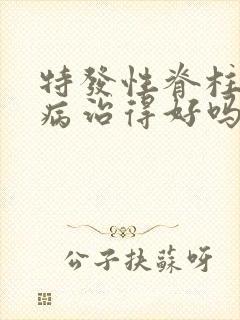 特發性脊柱
病治得好嗎
公子扶蘇呀